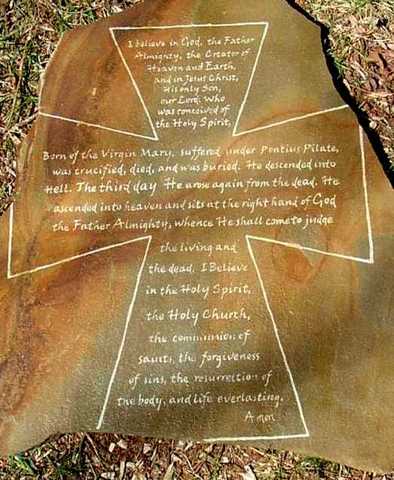 I believe in God, the Father
Almighty, the Creator of
Heaven and Earth,
and in Jesus Christ,
His only Son,
our Lord: Who
was conceived of
the Holy Spirit,
Born of the Virgin Mary, suffered under Pontius Pilate,
was crucified, died, and was buried. He descended into
Hell. The third day He arose again from the dead. He
ascended into heaven and sits at the right hand of God
the Father Almighty, whence He shall come to judge
the living and
the dead. I Believe
in the Holy Spirit,
the Holy Church,
the communion of
saints, the forgiveness
of sins, the resurrection of
the body, and life everlasting.
Amen